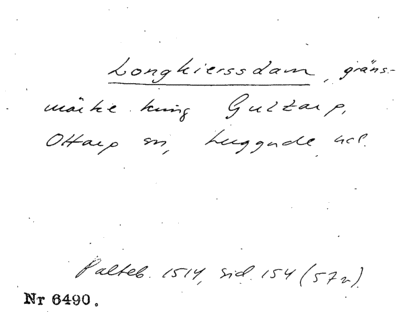 Longkierssdam, gräns-
märke kring Guttarp,
Ottarp sn, Luggude hd.
Palteb. 1514, sid. 154 (57v).
Nr 6490.